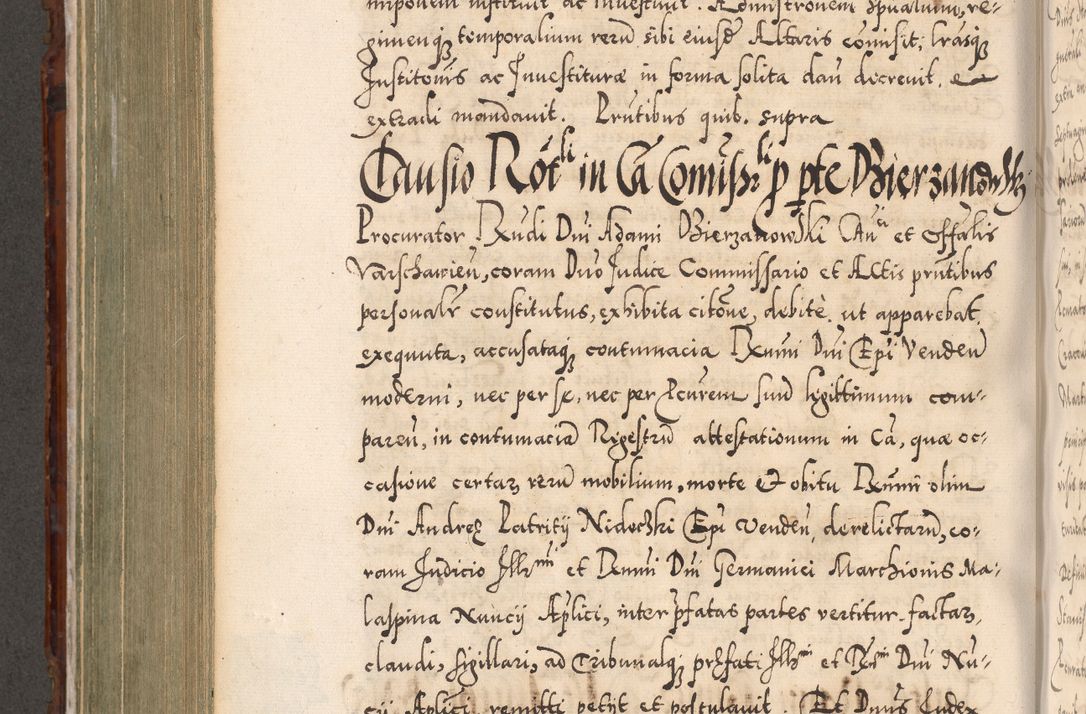 imponem instituit ac investiuit. Administronem spualium, re-
gimenq3 temporalium rerũ sibi eiusd Altaris cõmisit, lrasq3
Institonis ac Inuestituræ in forma solita dari decreuit. e
extradi mandauit. Prntibus quib. supra
Clausio Rotli in Cã Comissrli p pte Bierzanowski
Procurator Rndi Dni Adami Bierzanowski Canci et Offalis
Varschawien, coram Dno Judice Commissario et Actis prntibus
personalr constitutus, exhibita citõne, debite ut apparebat
exequuta, accusataq3 contumacia Rxmi Dni Epi Venden
moderni, nec per se, nec per Pcurem suũ legittimum com-
paren, in contumaciã Regestrũ attestationum in Cã, quæ oc-
casione certar rerũ mobilium, morte et obitu Rxmi olim
Dni Andreę Patritij Nidecki Epi Venden, derelictarũ, co-
ram Judicio Illrmi et Rxmi Dni Germanici Marchionis Ma-
laspina Nuncij Aplici, inter pfatas partes vertitur factar,
claudi, sigillari, ad Tribunalq3 præfati Illrmi et Rxmi Dni Nu-
cij Aplici remitti petijt et postulauit. Et Dnus Judex